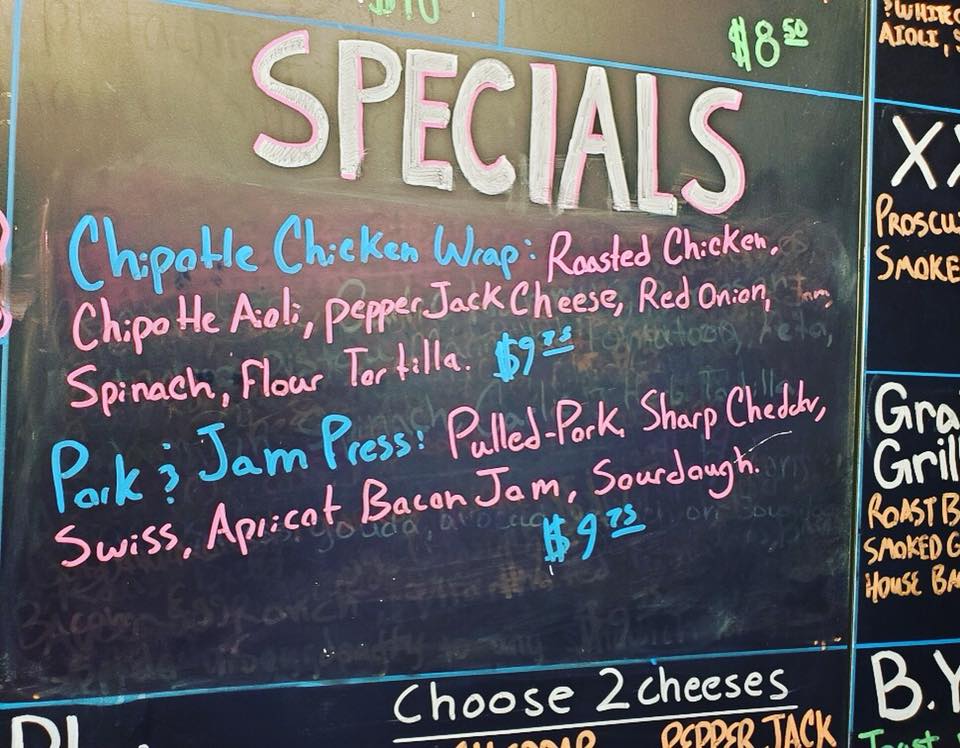 $10
$8 50
SPECIALS
Chipotle Chicken Wrap: Roasted Chicken,
Chipotle Aioli, Pepper Jack Cheese, Red Onion,
Spinach, Flour Tortilla. $9 75
Pork & Jam Press: Pulled-Pork, Sharp Cheddar,
Swiss, Apricot Bacon Jam, Sourdough.
$9 75
Choose 2 cheeses
PEPPER JACK
AIOLI,
XX
SMOKE
Gra
Grill
ROAST B
SMOKED G
HOUSE BA
B.Y